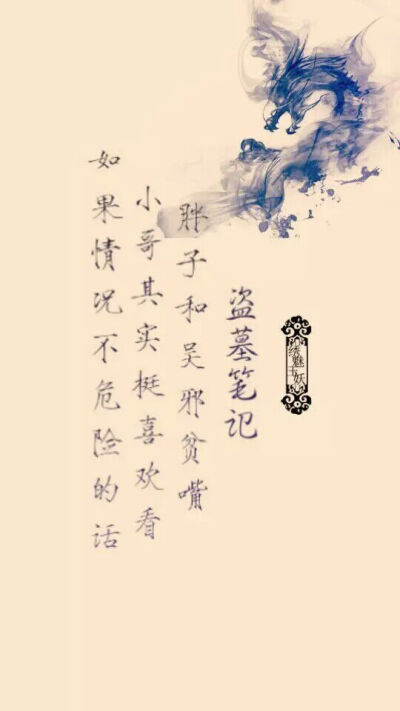 如果情况不危险的话
小哥其实挺喜欢看
胖子和吴邪贫嘴
盗墓笔记